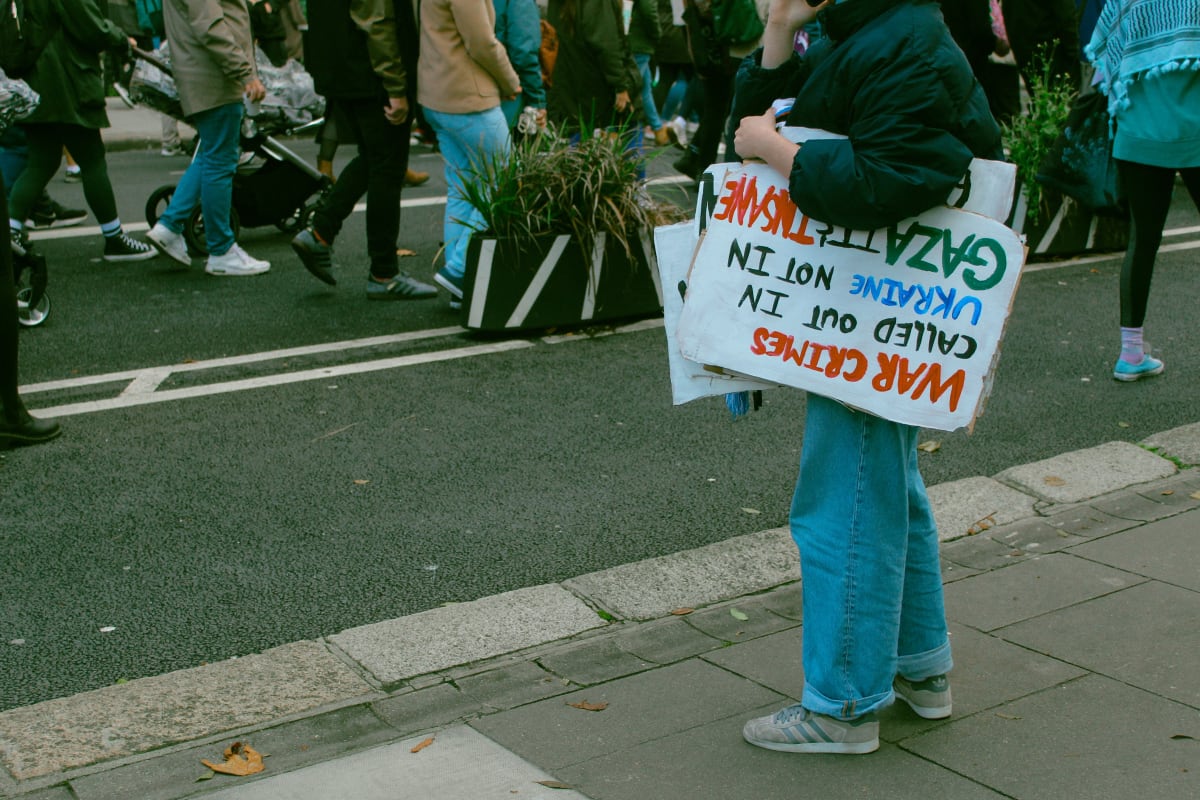 WAR CRIMES
CALLED OUT IN
UKRAINE NOT IN
GAZA ITS INSANE